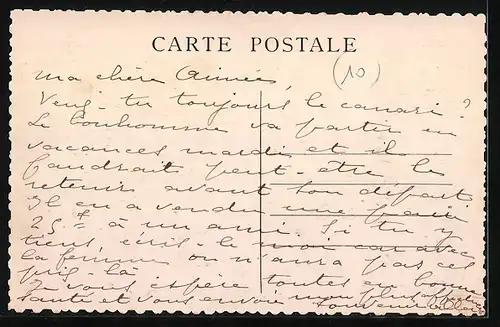 CARTE POSTALE
(10)
Ma chère Aimée,
Veux-tu toujours le canari ?
Le bonhomme va partir en
vacances mardi et il
faudrait peut-être le
retenir avant son départ
Il en a vendu une paire
25 F à un ami. Si tu y
tiens, écris-le moi car avec
la femme on n'aura pas ces
prix-là
Je vous espère toutes en bonne
santé et vous envoie